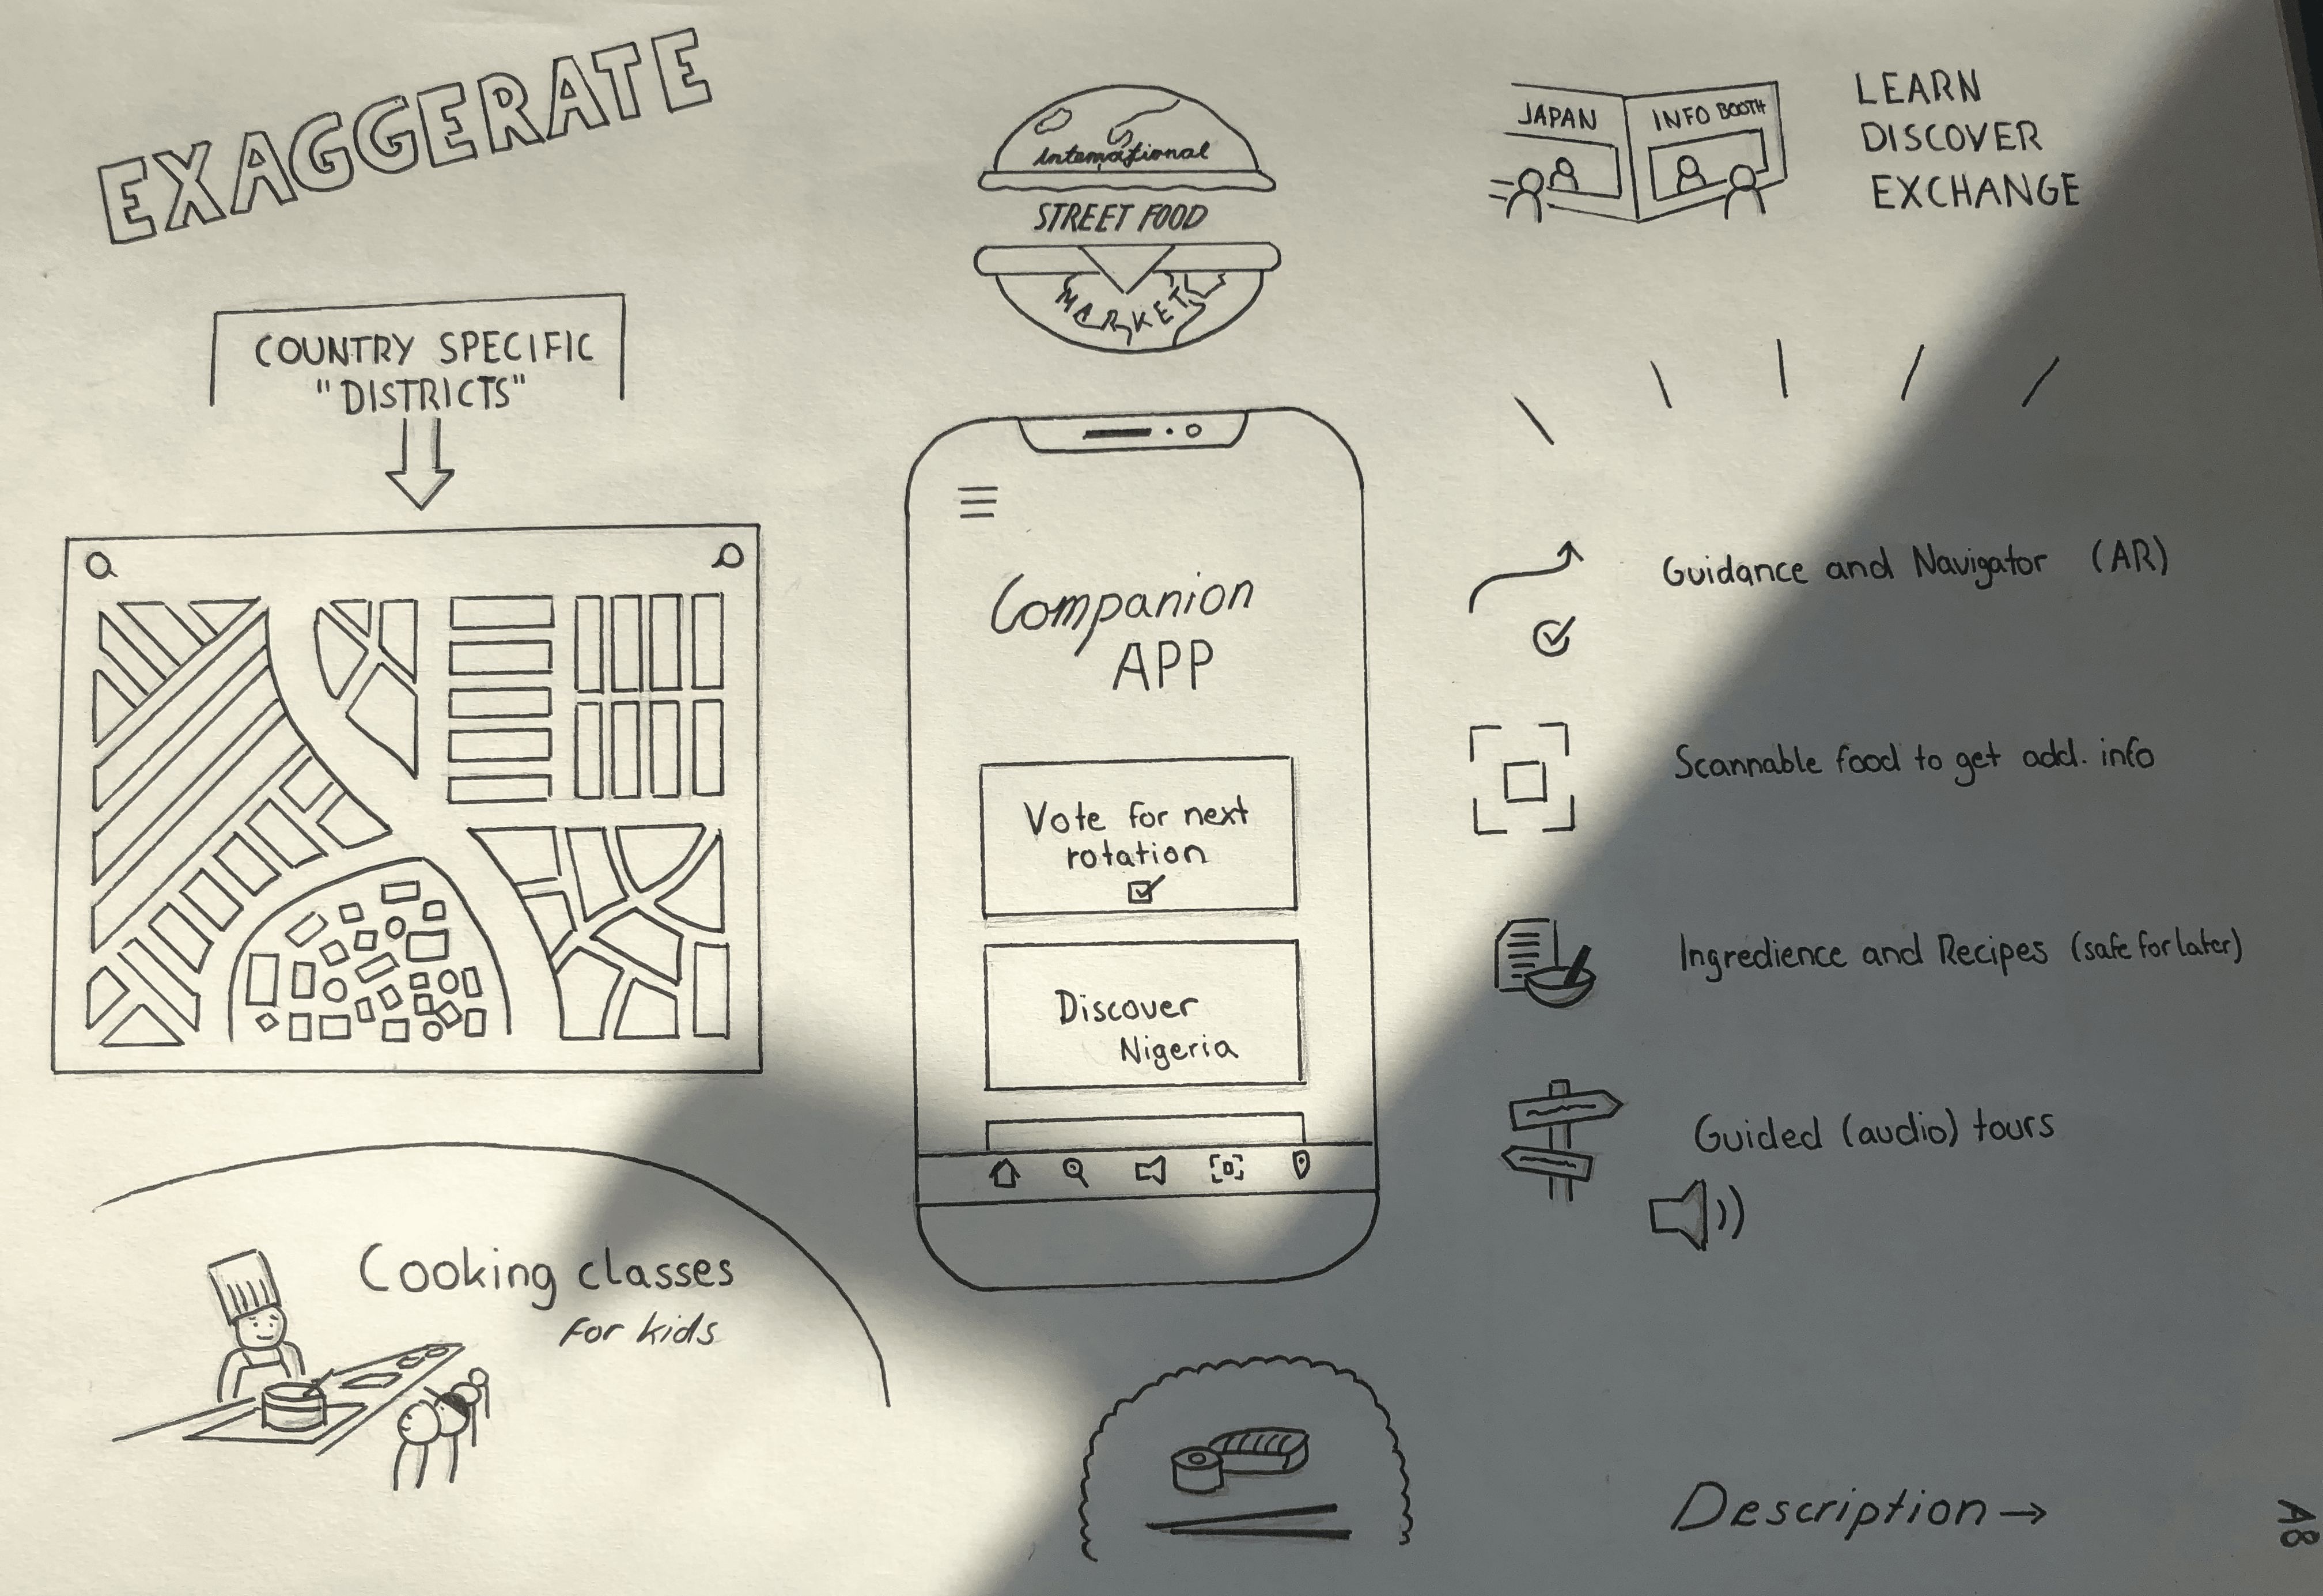 EXAGGERATE
COUNTRY SPECIFIC
"DISTRICTS"
International
STREET FOOD
MARKET
JAPAN
INFO BOOTH
LEARN
DISCOVER
EXCHANGE
Companion
APP
Vote for next
rotation
Discover
Nigeria
Guidance and Navigator (AR)
Scannable food to get add. info
Ingredience and Recipes (safe for later)
Guided (audio) tours
Cooking classes
for kids
Description →
A8